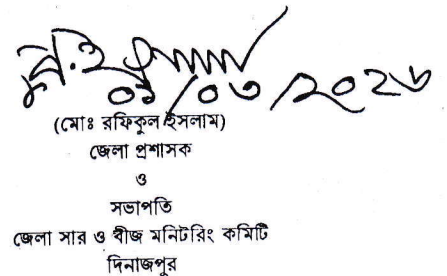 ০১/০৩/২০২৬
(মোঃ রফিকুল ইসলাম)
জেলা প্রশাসক
ও
সভাপতি
জেলা সার ও বীজ মনিটরিং কমিটি
দিনাজপুর